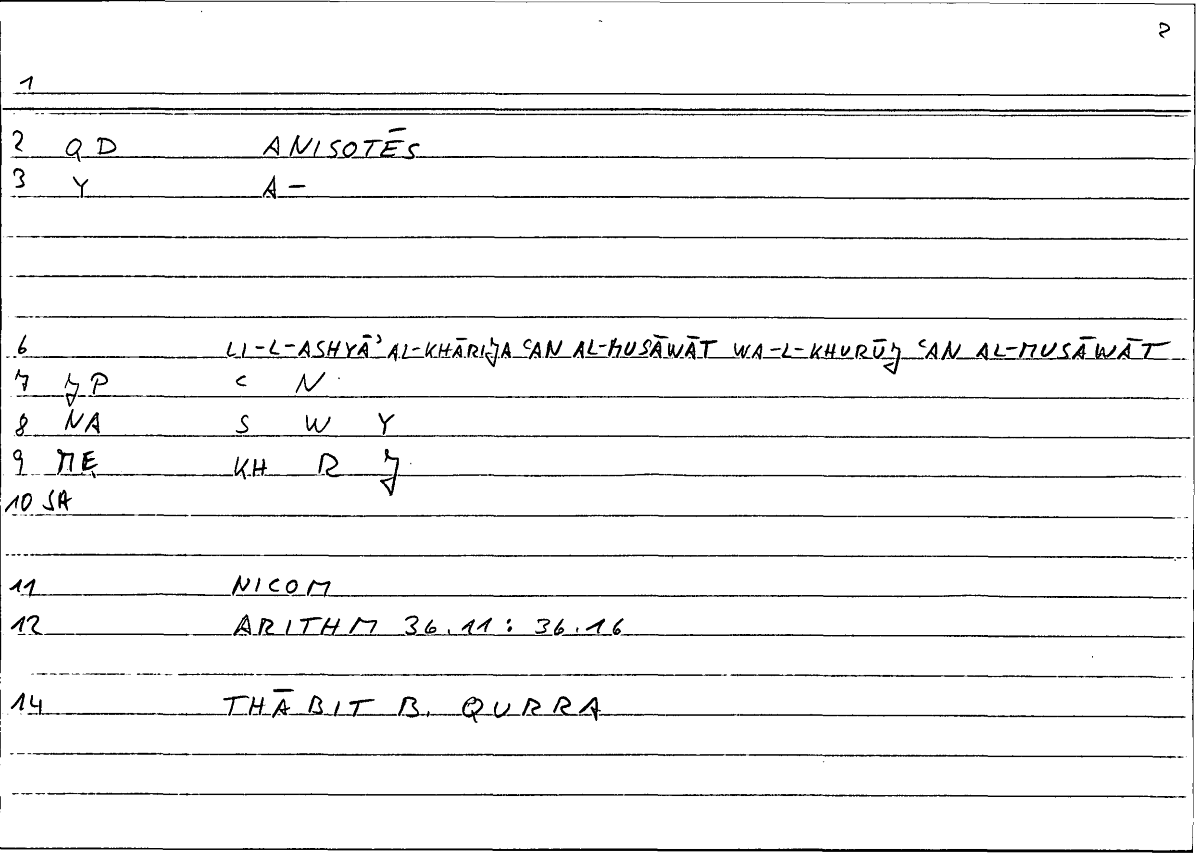 2
1
2 QD ANISOTĒS
3 Y A-
6 LI-L-ASHYĀʾ AL-KHĀRIJA ʿAN AL-MUSĀWĀT WA-L-KHURŪJ ʿAN AL-MUSĀWĀT
7 JP ʿ N
8 NA S W Y
9 MẸ KH R J
10 SA
11 NICOM
12 ARITHM 36.11 : 36.16
14 THĀBIT B. QURRA